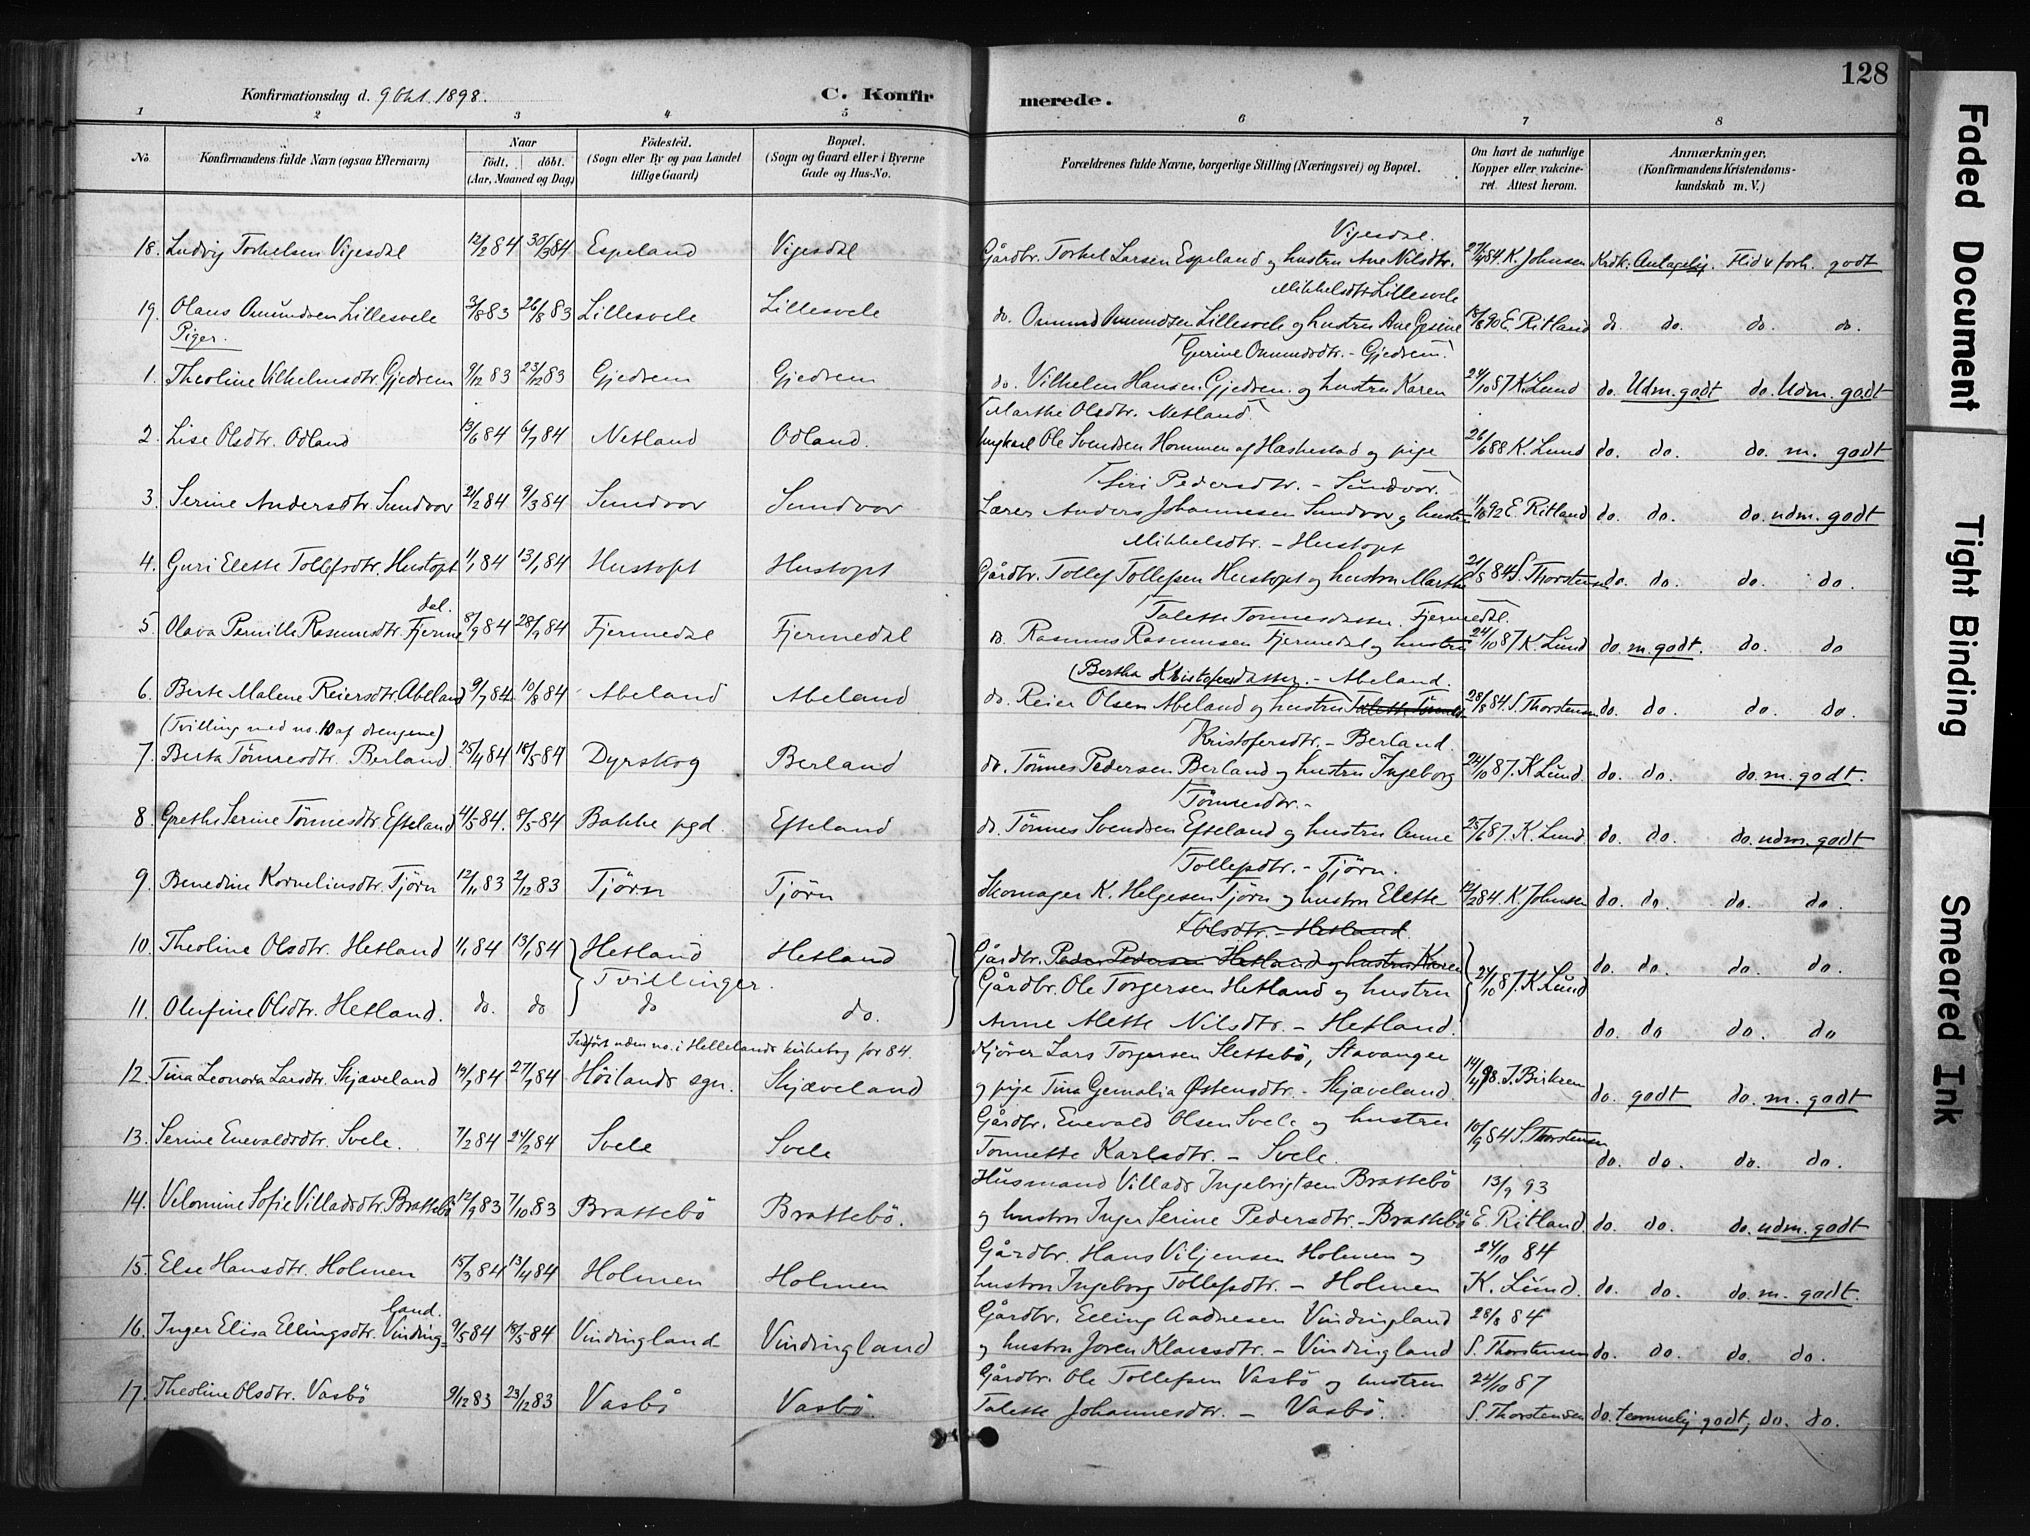 128
Konfirmationsdag d. 9 Okt. 1898. C. Konfirmerede.
1 2 3 4 5 6 7 8
No. Konfirmandens fulde Navn (ogsaa Efternavn) Naar födt, döbt. (Aar, Maaned og Dag) Födested. (Sogn eller By og paa Landet tillige Gaard) Bopæl. (Sogn og Gaard eller i Byerne Gade og Hus-No. Forældrenes fulde Navne, borgerlige Stilling (Næringsvei) og Bopæl. Om havt de naturlige Kopper eller vakcineret. Attest herom. Anmærkninger. (Konfirmandens Kristendomskundskab m. V.)
18. Ludvig Torkelsen Vigesdal 12/2 84 30/3 84 Espeland Vigesdal Gårdbr. Torkel Larsen Espeland og hustru Ane Nilsdtr. Vigesdal. 27/9 84. K. Johnsen Krdk. Antagelig. Flid & forh. godt
19. Olaus Omundsen Lillesvele 3/8 83 26/8 83 Lillesvele Lillesvele do. Omund Omundsen Lillesvele og hustru Ane Gesine Mikkelsdtr. Lillesvele E. Ritland do. do. do. do.
Piger.
1. Theoline Vilhelmsdtr. Gjedrem 9/12 83 23/12 83 Gjedrem Gjedrem do. Vilhelm Hansen Gjedrem og hustru Karen Gurine Omundsdtr. - Gjedrem. 24/10 87 K. Lund do. Udm. godt do. Udm. godt
2. Lise Olsdtr. Odland 13/6 84 6/7 84 Netland Odland. Ungkarl Ole Svendsen Hommen af Hæskestad og pige Marthe Olsdtr. Netland 26/6 88 K. Lund do. do. do. m. godt
3. Serine Andersdtr. Sundvor 21/2 84 9/3 84 Sundvor Sundvor Lærer Anders Johannesen Sundvor og hustru Siri Pedersdtr. - Sundvor. E. Ritland do. do. do. udm. godt
4. Guri Elette Tollefsdtr. Hustopt 1/1 84 13/1 84 Hustopt Hustopt Gårdbr. Tollef Tollefsen Hustopt og hustru Marthe Mikkelsdtr. - Hustopt 21/5 84 S. Thorstensen do. do. do. do.
5. Olava Pernille Rasmusdtr. Fjermedal. 8/9 84 28/9 84 Fjermedal Fjermedal do. Rasmus Rasmussen Fjermedal og hustru Talette Tønnesdatter Fjermedal. 24/10 87 K. Lund do. m. godt. do. do
6. Berte Malene Reiersdtr. Abeland 9/7 84 10/8 84 Abeland Abeland do. Reier Olsen Abeland og hustru Talette Tønnes- Bertha Kristofersdatter. - Abeland. 28/8 84. S. Thorstensen do. do. do. do.
(Tvilling med no. 10 af drengene)
7. Berta Tønnesdtr. Berland. 25/4 84 18/5 84 Dyrskog Berland do. Tønnes Pedersen Berland og hustru Ingeborg Kristofersdtr. - Berland. 24/10 87. K Lund. do. do. do. m. godt.
8. Grethe Serine Tönnesdtr. Efteland 4/5 84. 8/5 84 Bakke pgd. Efteland do. Tönnes Svendsen Efteland og hustru Anne Tönnesdtr. - 25/6 87. K. Lund. do. do. do. udm. godt
9. Benedine Korneliusdtr. Tjörn 12/11 83 2/12 83 Tjörn Tjörn Skomager K. Helgesen Tjörn og hustru Elette Tollefsdtr. - Tjörn. 12/2 84. K. Johnsen do. do. do. do.
10. Theoline Olsdtr. Hetland 1/1 84 13/1 84 Hetland Hetland Gårdbr. Peder Pedersen Hetland og hustru Karen Olsdtr. - Hetland. do. do. do. do
Tvillinger. Gårdbr. Ole Torgersen Hetland og hustru 24/10 87. K Lund
11. Olufine Olsdtr. Hetland. do. do do do. Anne Alette Nilsdtr. - Hetland. do. do do. do
Indført uden no. i Hellelands kirkebog for 84.
12. Tina Leonora Larsdtr. Skjæveland 27/7 84 Höilands sgn. Skjæveland Kjører Lars Torgersen Slettebö, Stavanger og pige Tina Gemalia Østensdtr. - Skjæveland. 14/4 98. J. Birkrem do. godt do. m. godt
13. Serine Enevaldsdtr. Svele. 7/2 84 24/2 84 Svele Svele Gårdbr. Enevald Olsen Svele og hustru Tønnette Karlsdtr. - Svele. 10/9 84 S. Thorstensen do. do. do. do.
14. Velomine Sofie Villadsdtr. Brattebö 12/9 83 7/10 83 Brattebö Brattebö. Husmand Villads Ingebrigtsen Brattebö og hustru Inger Serine Pedersdtr. - Brattebö 13/9 93 E. Ritland. do. do. do. udm. godt
15. Else Hansdtr. Holmen 15/3 84 13/4 84 Holmen Holmen Gårdbr. Hans Viljensen Holmen og hustru Ingeborg Tollefsdtr. - Holmen 24/10 84 K. Lund. do. do. do. m. godt.
16. Inger Elisa Ellingsdtr. Vindingland. 9/5 84 18/5 84 Vindingland Vindingland Gårdbr. Elling Aadnesen Vindingland og hustru Joren Klausdtr. - Vindingland 28/8 84 S. Thorstensen do. do. do. do.
17. Theoline Olsdtr. Vasbö 9/12 83 23/12 83 Vasbö Vasbö. Gårdbr. Ole Tollefsen Vasbö og hustru Talette Johannesdtr. - Vasbö. 24/10 87 S. Thorstensen do. temmelig godt, do. do.
Faded Document
Tight Binding
Smeared Ink